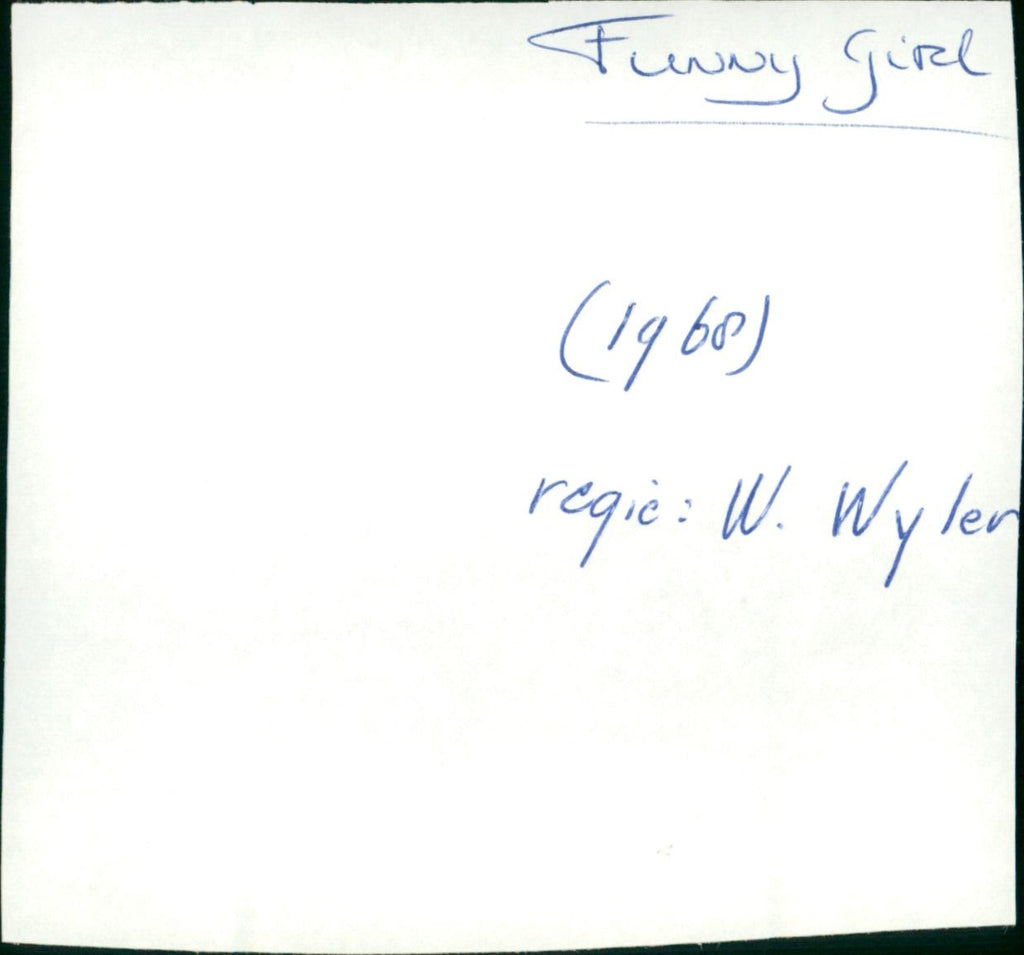 Funny Girl
(1968)
regie: W. Wyler